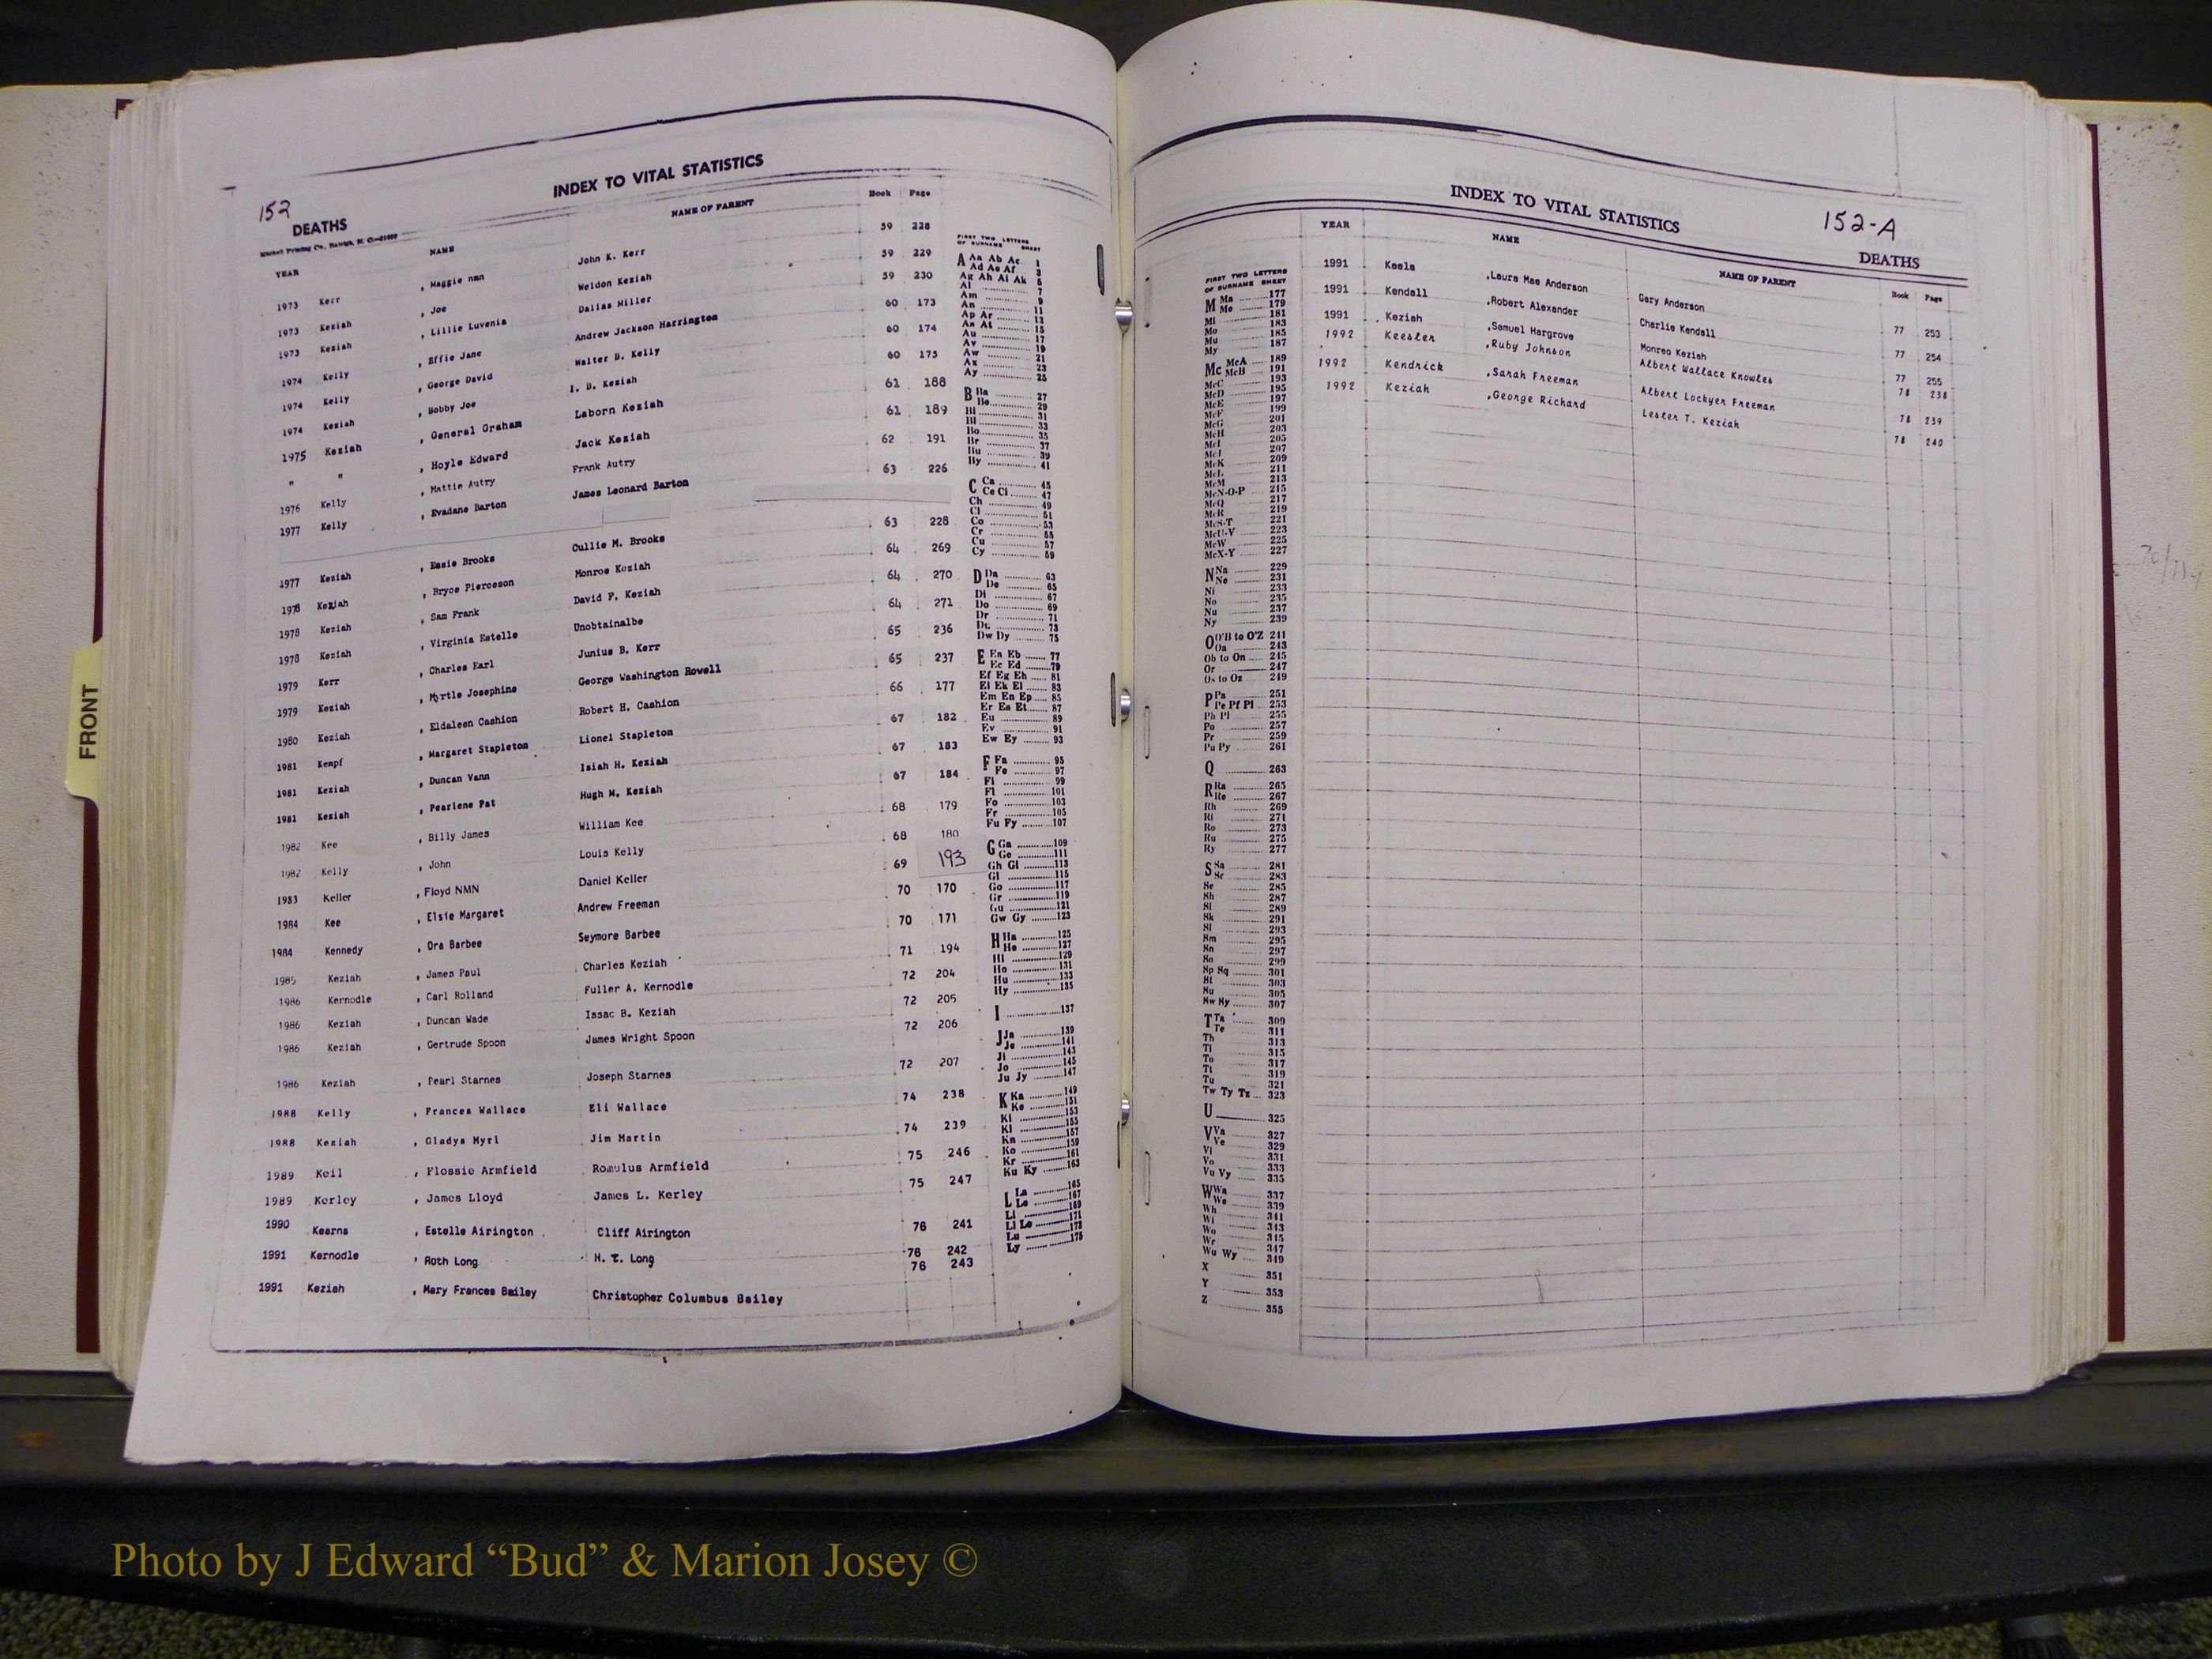 152
INDEX TO VITAL STATISTICS
DEATHS
YEAR NAME NAME OF PARENT Book Page
1973 Kerr , Maggie nmn John K. Kerr 59 228
1973 Keziah , Joe Weldon Keziah 59 229
1973 Keziah , Lillie Luvenia Dallas Miller 59 230
1974 Kelly , Effie Jane Andrew Jackson Harrington 60 173
1974 Kelly , George David Walter B. Kelly 60 174
1974 Keziah , Bobby Joe I. B. Keziah 60 175
1975 Keziah , General Graham Laborn Keziah 61 188
" " , Hoyle Edward Jack Keziah 61 189
1976 Kelly , Mattie Autry Frank Autry 62 191
1977 Kelly , Evadane Barton James Leonard Barton 63 226
1977 Keziah , Essie Brooks Cullie M. Brooks 63 228
1978 Keziah , Bryce Pierceson Monroe Keziah 64 269
1978 Keziah , Sam Frank David F. Keziah 64 270
1978 Keziah , Virginia Estelle Unobtainalbe 64 271
1979 Kerr , Charles Earl Junius B. Kerr 65 236
1979 Keziah , Myrtle Josephine George Washington Rowell 65 237
1980 Keziah , Eldaleen Cashion Robert H. Cashion 66 177
1981 Kempf , Margaret Stapleton Lionel Stapleton 67 182
1981 Keziah , Duncan Vann Isiah H. Keziah 67 183
1981 Keziah , Pearlene Pat Hugh M. Keziah 67 184
1982 Kee , Billy James William Kee 68 179
1982 Kelly , John Louis Kelly 68 180
1983 Keller , Floyd NMN Daniel Keller 69 193
1984 Kee , Elsie Margaret Andrew Freeman 70 170
1984 Kennedy , Ora Barbee Seymore Barbee 70 171
1985 Keziah , James Paul Charles Keziah 71 194
1986 Kernodle , Carl Holland Fuller A. Kernodle 72 204
1986 Keziah , Duncan Wade Issac B. Keziah 72 205
1986 Keziah , Gertrude Spoon James Wright Spoon 72 206
1986 Keziah , Pearl Starnes Joseph Starnes 72 207
1988 Kelly , Frances Wallace Eli Wallace 74 238
1988 Keziah , Gladys Myrl Jim Martin 74 239
1989 Keil , Flossie Armfield Romulus Armfield 75 246
1989 Kerley , James Lloyd James L. Kerley 75 247
1990 Kearns , Estelle Airington Cliff Airington 76 241
1991 Kernodle , Roth Long H. T. Long 76 242
1991 Keziah , Mary Frances Bailey Christopher Columbus Bailey 76 243
FIRST TWO LETTERS
OF SURNAME SHEET
A Aa Ab Ac 1
Ad Ae Af 3
Ag Ah Ai Ak 5
Al 7
Am 9
An 11
Ap Ar 13
As At 15
Au 17
Av 19
Aw 21
Ax 23
Ay 25
B Ba 27
Be 29
Bi 31
Bl 33
Bo 35
Br 37
Bu 39
By 41
C Ca 45
Ce Ci 47
Ch 49
Cl 51
Co 53
Cr 55
Cu 57
Cy 59
D Da 63
De 65
Di 67
Do 69
Dr 71
Du 73
Dw Dy 75
E Ea Eb 77
Ec Ed 79
Ef Eg Eh 81
Ei Ek El 83
Em En Ep 85
Er Es Et 87
Eu 89
Ev 91
Ew Ey 93
F Fa 95
Fe 97
Fi 99
Fl 101
Fo 103
Fr 105
Fu Fy 107
G Ga 109
Ge 111
Gh Gi 113
Gl 115
Go 117
Gr 119
Gu 121
Gw Gy 123
H Ha 125
He 127
Hi 129
Ho 131
Hu 133
Hy 135
I 137
J Ja 139
Je 141
Ji 143
Jo 145
Ju Jy 147
K Ka 149
Ke 151
Ki 153
Kl 155
Kn 157
Ko 159
Kr 161
Ku Ky 163
L La 165
Le 167
Li 169
Ll Lo 171
Lu 173
Ly 175
INDEX TO VITAL STATISTICS
152-A
DEATHS
YEAR NAME NAME OF PARENT Book Page
1991 Keels ,Laura Mae Anderson Gary Anderson 77 253
1991 Kendall ,Robert Alexander Charlie Kendall 77 254
1991 Keziah ,Samuel Hargrove Monroe Keziah 77 255
1992 Keesler ,Ruby Johnson Albert Wallace Knowles 78 238
1992 Kendrick ,Sarah Freeman Albert Lockyer Freeman 78 239
1992 Keziah ,George Richard Lester T. Keziah 78 240
FIRST TWO LETTERS
OF SURNAME SHEET
M Ma 177
Me 179
Mi 181
Mo 183
Mu 185
My 187
Mc McA 189
McB 191
McC 193
McD 195
McE 197
McF 199
McG 201
McH 203
McI 205
McJ 207
McK 209
McL 211
McM 213
McN-O-P 215
McQ 217
McR 219
McS-T 221
McU-V 223
McW 225
McX-Y 227
N Na 229
Ne 231
Ni 233
No 235
Nu 237
Ny 239
O O'B to O'Z 241
Oa 243
Ob to On 245
Or 247
Os to Oz 249
P Pa 251
Pe Pf Pi 253
Ph Pl 255
Po 257
Pr 259
Pu Py 261
Q 263
R Ra 265
Re 267
Rh 269
Ri 271
Ro 273
Ru 275
Ry 277
S Sa 281
Sc 283
Se 285
Sh 287
Si 289
Sk 291
Sl 293
Sm 295
Sn 297
So 299
Sp Sq 301
St 303
Su 305
Sw Sy 307
T Ta 309
Te 311
Th 313
Ti 315
To 317
Tr 319
Tu 321
Tw Ty Tz 323
U 325
V Va 327
Ve 329
Vi 331
Vo 333
Vu Vy 335
W Wa 337
We 339
Wh 341
Wi 343
Wo 345
Wr 347
Wu Wy 349
X 351
Y 353
Z 355
FRONT
Photo by J Edward “Bud” & Marion Josey ©